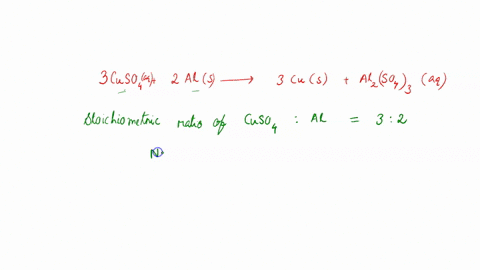 3CuSO₄(aq)+ 2 Al(s) ⟶ 3 Cu(s) + Al₂(SO₄)₃ (aq)
Stoichiometric ratio of CuSO₄ : Al = 3 : 2
N